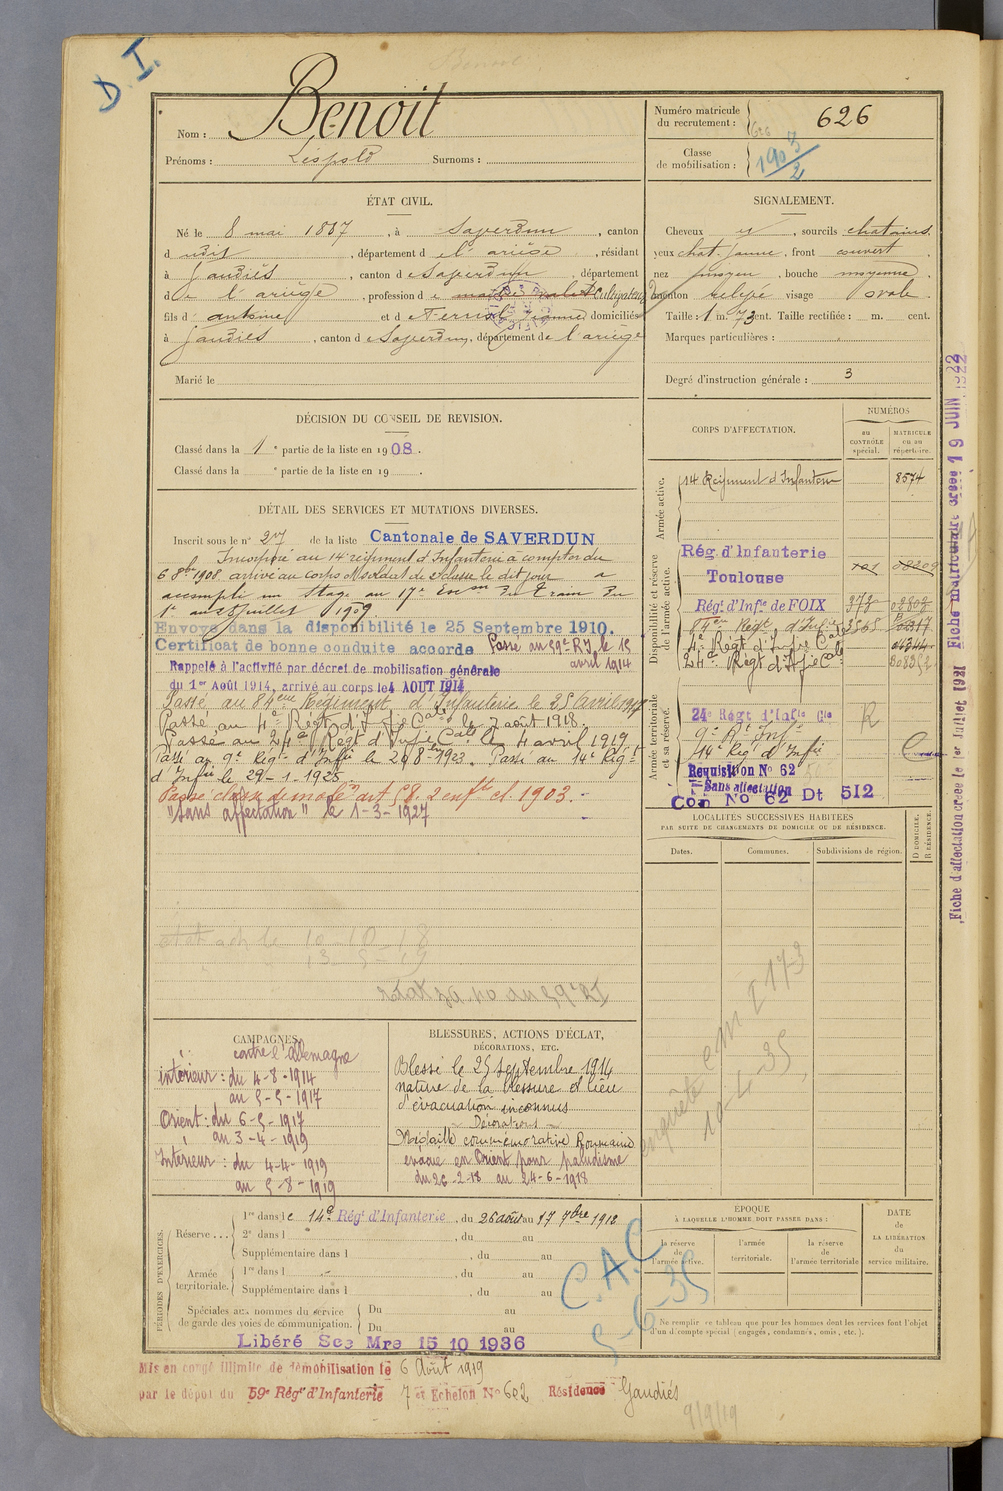 D. I.
Nom : Benoit
Prénoms : Léopold Surnoms :
Numéro matricule du recrutement : 626
Classe de mobilisation : 1903/2
ÉTAT CIVIL.
Né le 8 mai 1887, à Saverdun, canton
dudit, département de l'ariège, résidant
à Gaudiès, canton de Saverdun, département
de l'ariège, profession de Cultivateur
fils d'antoine et de domiciliés
à Gaudiès, canton de Saverdun, département de l'ariège
Marié le
SIGNALEMENT.
Cheveux et, sourcils chatains
yeux chat. jaune, front couvert
nez moyen, bouche moyenne
menton relevé visage ovale
Taille : 1 m. 73 cent. Taille rectifiée : m. cent.
Marques particulières :
Degré d'instruction générale : 3
DÉCISION DU CONSEIL DE REVISION.
Classé dans la 1e partie de la liste en 1908.
Classé dans la e partie de la liste en 19
DÉTAIL DES SERVICES ET MUTATIONS DIVERSES.
Inscrit sous le n° 27 de la liste Cantonale de SAVERDUN
Incorporé au 14e régiment d'Infanterie à compter du
6 8bre 1908, arrivé au corps et soldat de 2e classe le dit jour a
accompli un stage au 17e Escon du Train du
1er au 25 juillet 1909
Envoyé dans la disponibilité le 25 Septembre 1910.
Certificat de bonne conduite accordé Passé au 59e R.I. le 15
avril 1914
Rappelé à l'activité par décret de mobilisation générale
du 1er Août 1914, arrivé au corps le 4 AOUT 1914
Passé au 84ème Régiment d'Infanterie le 25 avril 1917
Passé au 4e Régt d'Infie Cale le 7 août 1918.
Passé au 24e Régt d'Infie Cale le 4 avril 1919
Passé au 9e Régt d'Infie le 24 8bre 1923. Passé au 14e Régt
d'Infie le 29-1-1925.
Passé classe de mobon art 58. 2 enfts cl. 1903.-
"Sans affectation" le 1-3-1927
CORPS D'AFFECTATION.
NUMÉROS
au CONTRÔLE spécial.
MATRICULE ou au répertoire.
Armée active.
14 Régiment d'Infanterie 8574
Disponibilité et réserve de l'armée active.
Rég. d'Infanterie
Toulouse
Régt d'Infie de FOIX 373 02802
84ème Régt d'Infie 3565
4e Régt d'Infie Cale
24e Régt d'Infie Cale
Armée territoriale et sa réserve.
24e Régt d'Infie Cle R
9e Rt Infie
14e Régt d'Infie
Requisition N° 62
Sans affectation
Con N° 62 Dt 512
LOCALITÉS SUCCESSIVES HABITÉES
PAR SUITE DE CHANGEMENTS DE DOMICILE OU DE RÉSIDENCE.
Dates. Communes. Subdivisions de région. D DOMICILE. R RÉSIDENCE.
enquête
10-4-35
CAMPAGNES
contre l'allemagne
intérieur : du 4-8-1914
au 5-5-1917
Orient : du 6-5-1917
au 3-4-1919
Intérieur : du 4-4-1919
au 5-8-1919
BLESSURES, ACTIONS D'ÉCLAT,
DÉCORATIONS, ETC.
Blessé le 25 septembre 1914
nature de la blessure et lieu
d'évacuation inconnus
Décorations
Médaille commémorative Roumaine
évacué en Orient pour paludisme
du 26-2-18 au 24-6-1918
PÉRIODES D'EXERCICES.
Réserve... 1re dans le 14e Régt d'Infanterie, du 26 août au 17 7bre 1912
2e dans l , du au
Supplémentaire dans l , du au
Armée territoriale. 1re dans l , du au
Supplémentaire dans l , du au
Spéciales aux hommes du service de garde des voies de communication. Du au
Du au
Libéré Sce Mre 15 10 1936
C.A.C
5-6-35
ÉPOQUE
À LAQUELLE L'HOMME DOIT PASSER DANS :
la réserve de l'armée active.
l'armée territoriale.
la réserve de l'armée territoriale
DATE de LA LIBÉRATION du service militaire.
Ne remplir ce tableau que pour les hommes dont les services font l'objet
d'un décompte spécial (engagés, condamnés, omis, etc.).
Mis en congé illimité de démobilisation le 6 Août 1919
par le dépôt du 59e Régt d'Infanterie 7e Echelon N° 602 Résidence Gaudiés
9/9/19
Fiche d'affectation créée le 1er Juillet 1921 Fiche matriculaire créée 19 JUIN 1922